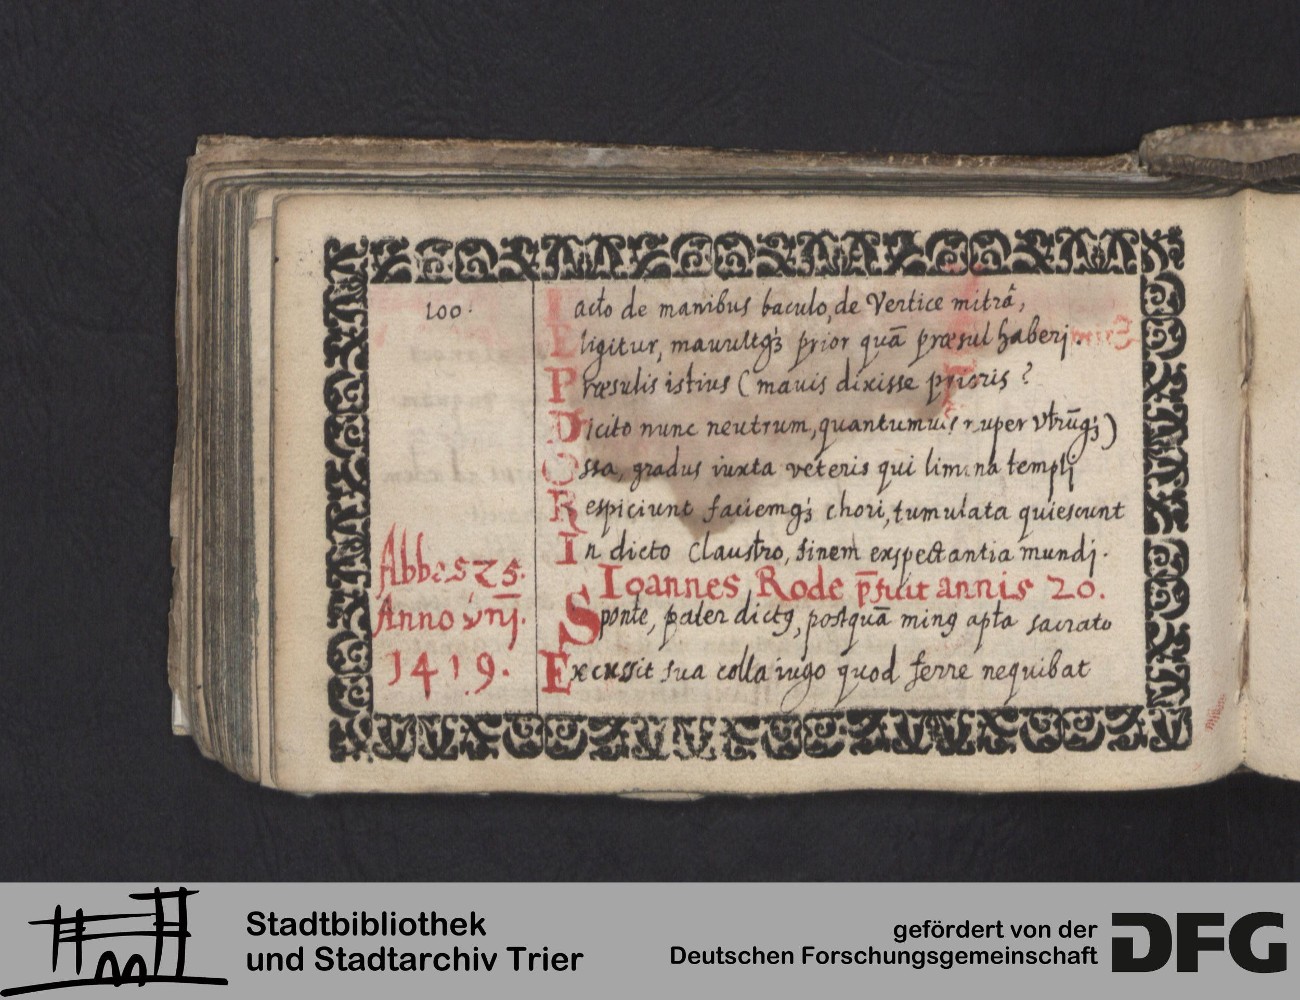 100.
Iacto de manibus baculo, de Vertice mitrâ,
Eligitur, mauultqꝫ prior quā præsul haberj.
Præsulis istius (mauis dixisse prioris?
Dicito nunc neutrum, quantumuis nuper vtrūqꝫ)
Ossa, gradus iuxta veteris qui limina templj
Respiciunt faciemqꝫ chori, tumulata quiescunt
In dicto Claustro, finem exspectantia mundj.
Abbas 25.
Ioannes Rode p̄fuit annis 20.
Anno
1419.
Sponte, pater dictꝰ, postquā minꝰ apta sacrato
Excussit sua colla iugo quod ferre nequibat
Stadtbibliothek
und Stadtarchiv Trier
gefördert von der
Deutschen Forschungsgemeinschaft
DFG